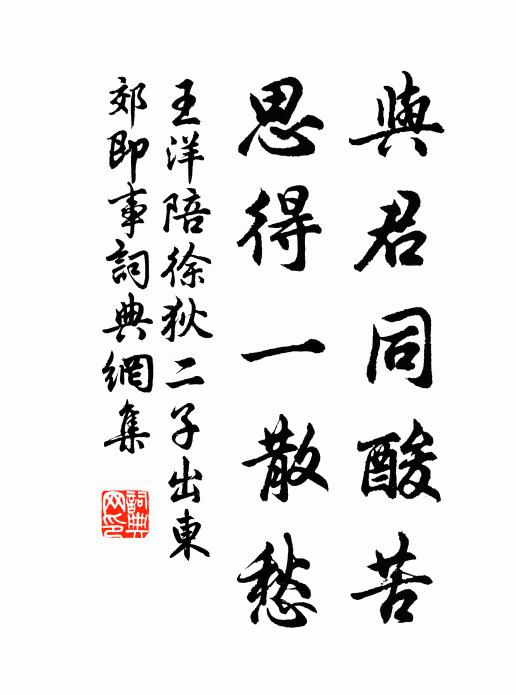 與君同酸苦
思得一散愁
王洋陪徐狄二子出東
郊即事詞典網集
詞典
网印